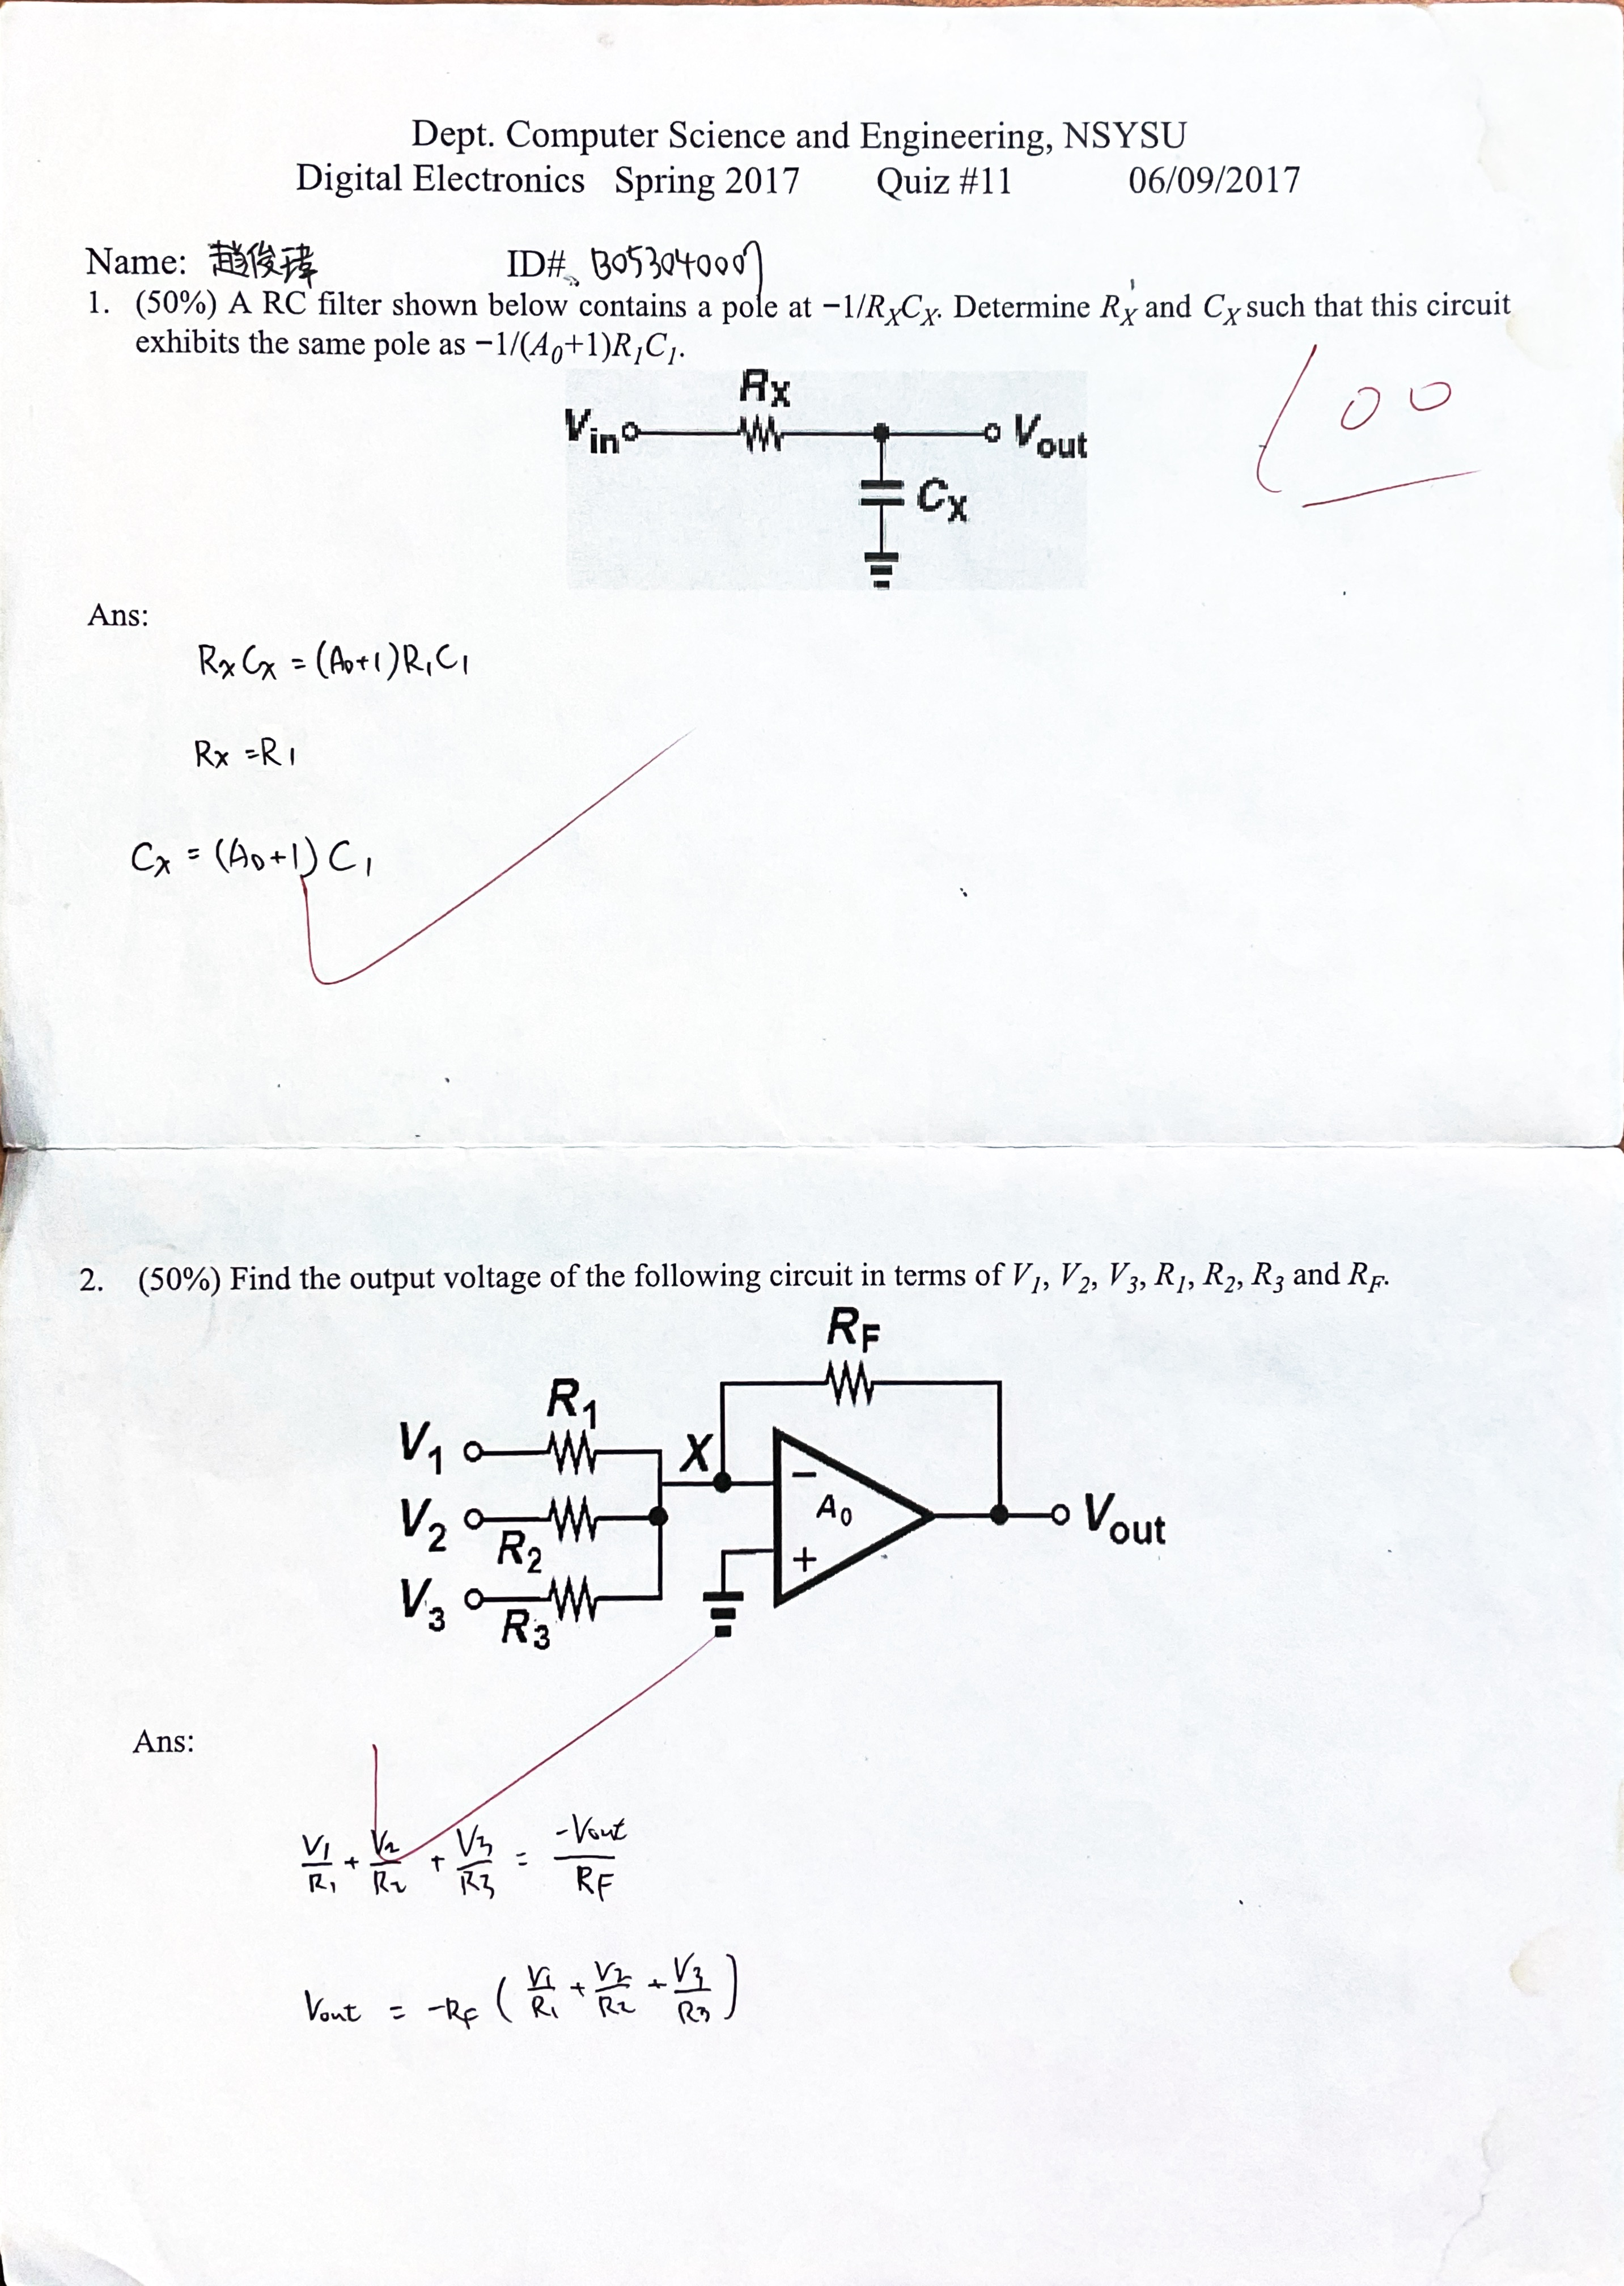 Dept. Computer Science and Engineering, NSYSU
Digital Electronics Spring 2017 Quiz #11 06/09/2017
Name: 趙俊瑋 ID# B053040007
1. (50%) A RC filter shown below contains a pole at −1/RXCX. Determine RX and CX such that this circuit
exhibits the same pole as −1/(A0+1)R1C1.
100
RX
Vin
Vout
CX
Ans:
RxCx = (A0+1)R1C1
Rx = R1
Cx = (A0+1) C1
2. (50%) Find the output voltage of the following circuit in terms of V1, V2, V3, R1, R2, R3 and RF.
RF
R1
V1
X
−
A0
V2
Vout
R2
+
V3
R3
Ans:
V1/R1 + V2/R2 + V3/R3 = -Vout/RF
Vout = -RF ( V1/R1 + V2/R2 + V3/R3 )